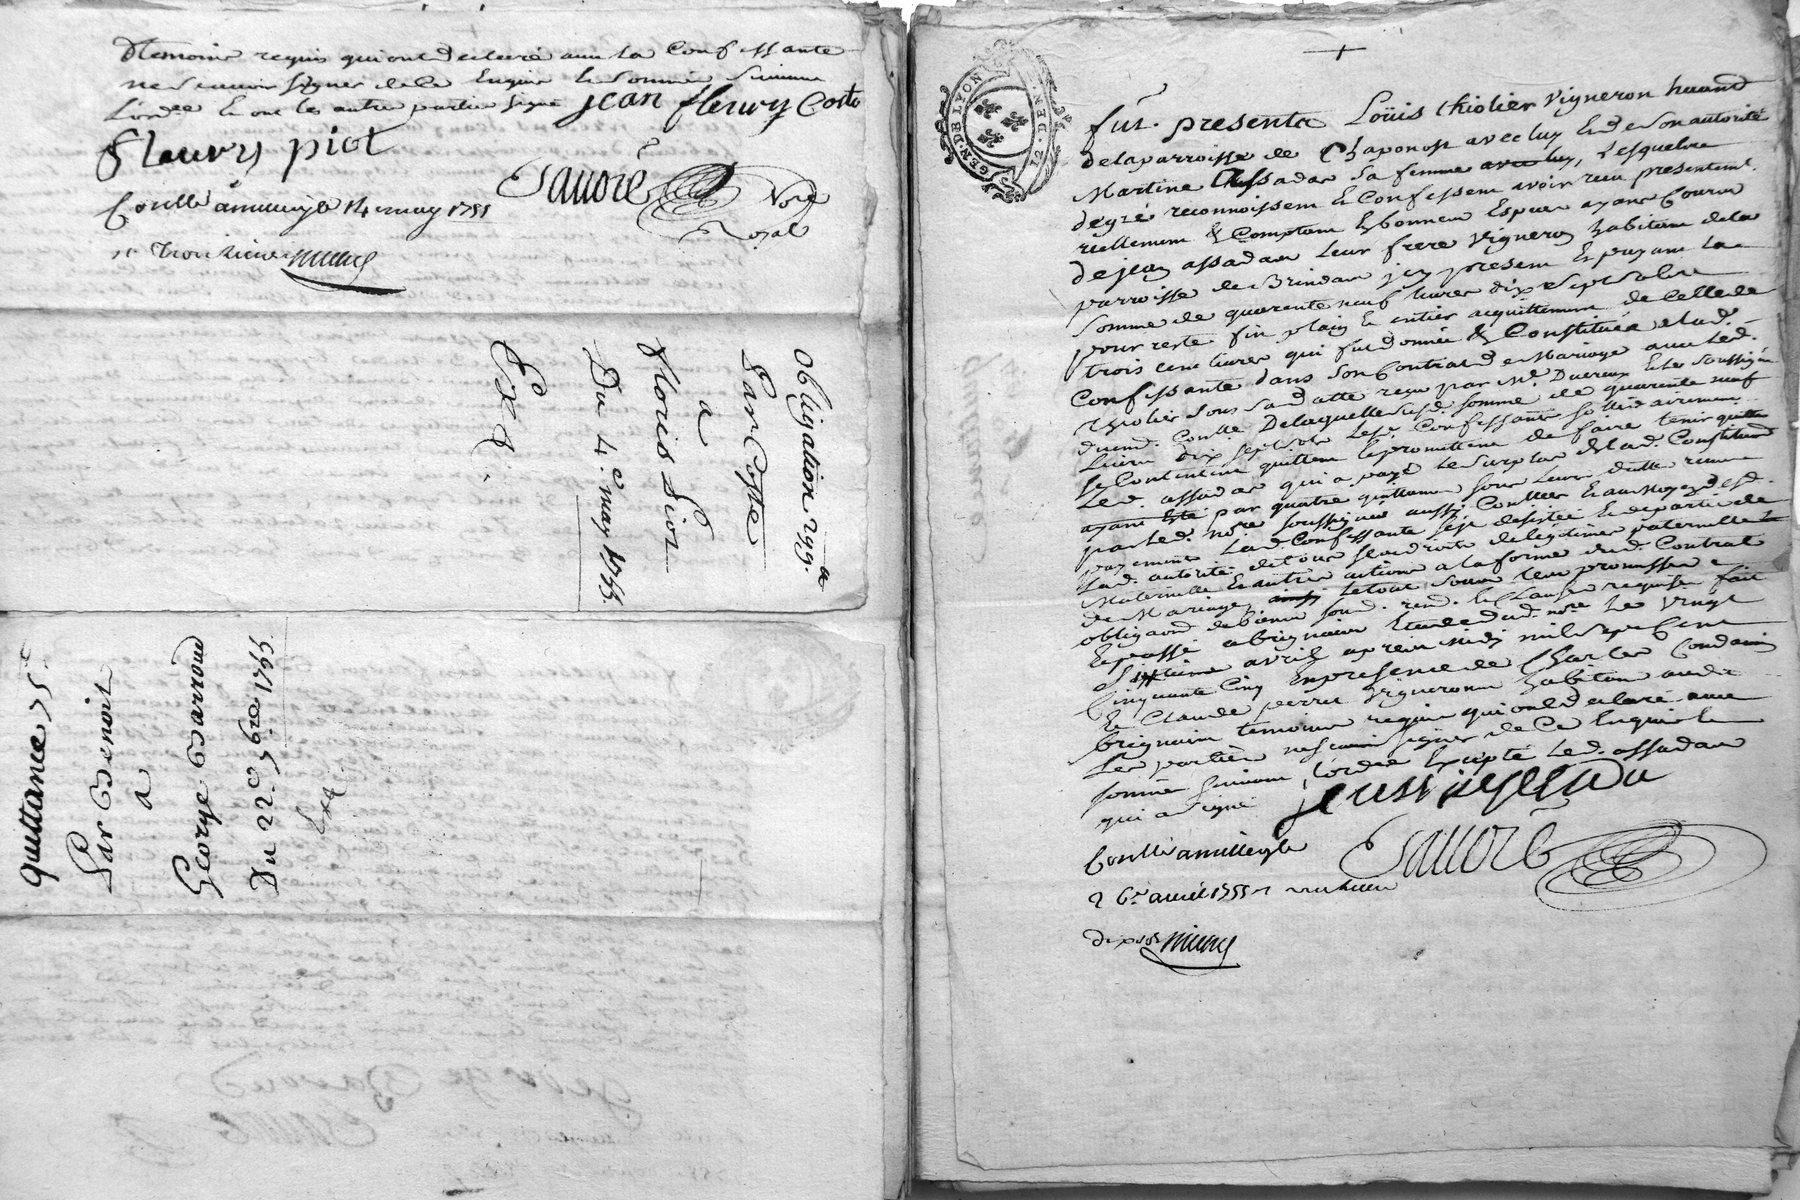 temoins requis qui ont declaré avec la Confessante
ne scavoir signer de ce Enquis et sommés suivant
l'ord.ce et ont les autres parties signé jean fleury Coste
fleury piot
Savoré No.re Royal
Conllé a le 14 may 1755
r. trois livres
Obligation 299.#
Par Coste
a
Floris Piot
Du 4.e may 1755.
Exp.
quittance 75.#
Par Benoit
a
George Barroud
Du 22.e 9bre 1755
Exp.
GEN. DE LYON
fut. presents Loüis thiolier Vigneron habitant
de la parroisse de Chaponost avec luy Et de Son autorité
Martine Assadas sa femme avec luy, Lesquels
de gré reconnoissent et Confessent avoir reçu presentement
réellement et Comptant En bonnes Especes ayant Cours
de jean assadas Leur frere vigneron habitant de la
parroisse de Brindas icy present Et payant la
somme de quarente neuf livres dix sept sols
pour reste fin plain et entier acquittement de Celle de
trois cent livres qui fut donnée et Constituée a lad.
Confessante dans son Contrat de Mariage avec led.
thiolier sous sa datte reçu par Me. et le soussigné
duem. Conllé De laquelle susd. somme de quarente neuf
livres dix sept sols lesd. Confessants sollidairement
se Contentent quittent et promettent de faire tenir quitte
Led. assadas qui a payé le surplus de lad. Constitution
ayant Esté par quatre quittances sous leurs dattes reçues
par led. no.re soussigné aussi Conllées Et au moyen desd.
payements Lad. Confessante s'est desistée et departie de
lad. autorité de tous ses droits de legitimes paternelle
Maternelle Et autres actions a la forme dud. Contrat
de Mariage, ainsy Le tout sous leurs promesses
obligaons de biens soum. ren. et Clauses requises fait
et passé a brignais Etude dud. no.re Le vingt
sixieme avril apres midi mil sept Cent
Cinquante Cinq En presence de Charles Condamin
Et Claude perret Vignerons habitants aud.
brignais temoins requis qui ont declaré avec
Les parties ne scavoir signer de Ce Enquis et
sommés suivant l'ord.ce Excepté Led. assadas
qui a signé
Savoré
Conllé a le
26e avril 1755 r.
dix sols